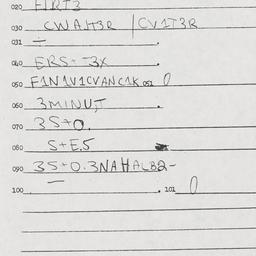 020 HIRT3
030 CWAH3R / CV1T3R
031 -
040 ERS- 3X
050 F1N1V1CVANC1K 051 0
060 3MINUT
070 3S+0.
080 S+E.5
090 3S+0.3NAHALB2-
100 . 101 0